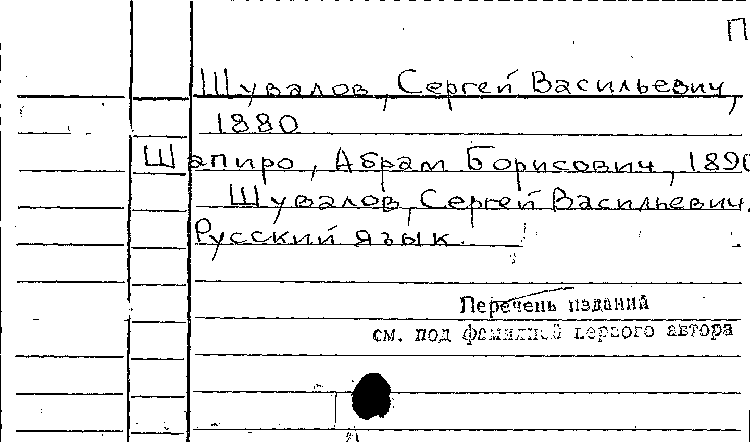 П
Шувалов, Сергей Васильевич,
1880
Шапиро, Абрам Борисович, 1890
Шувалов, Сергей Васильевич.
Русский язык.
Перечень изданий
см. под фамилией первого автора